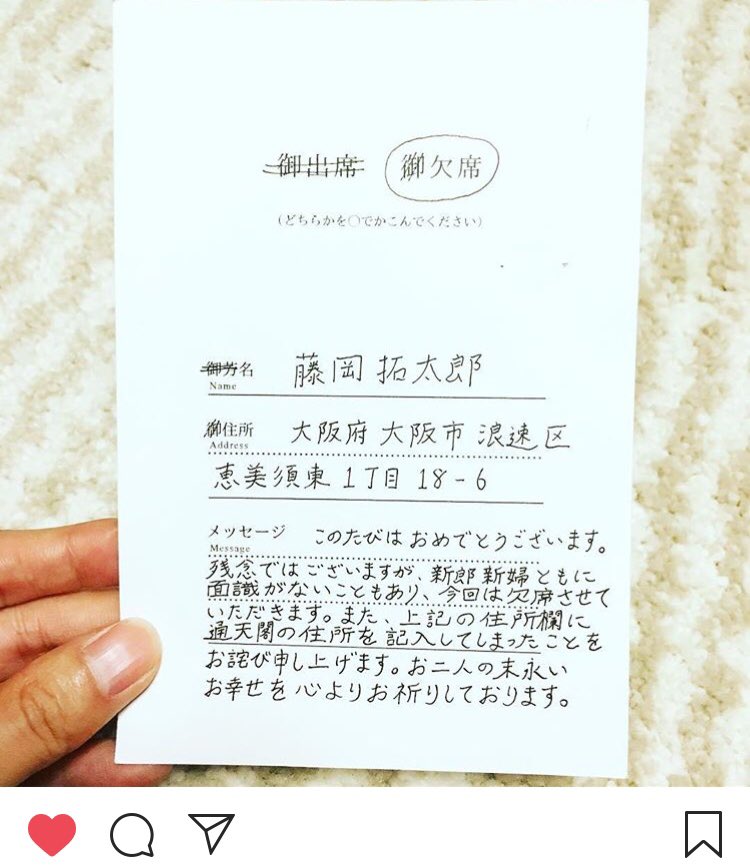 御出席 御欠席
(どちらかを○でかこんでください)
御芳名 藤岡 拓太郎
Name
御住所 大阪府 大阪市 浪速区
Address
恵美須東 1丁目 18-6
メッセージ このたびは おめでとうございます。
Message
残念ではございますが、新郎新婦ともに
面識がないこともあり、今回は欠席させて
いただきます。また、上記の住所欄に
通天閣の住所を記入してしまったことを
お詫び申し上げます。お二人の末永い
お幸せを心よりお祈りしております。